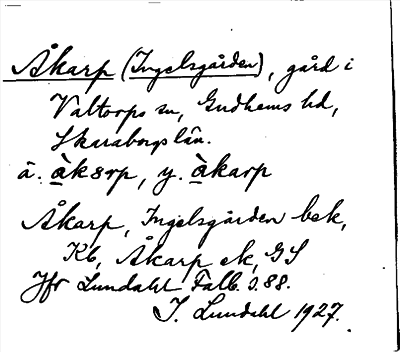 Åkarp (Ingelsgården), gård i
Valtorps sn, Gudhems hd,
Skaraborgs län.
ä. àkərp, y. àkarp
Åkarp, Ingelsgården bek,
Kb, Åkarp ek, GS
Jfr Lundahl Falb. s. 88.
I. Lundahl 1927.